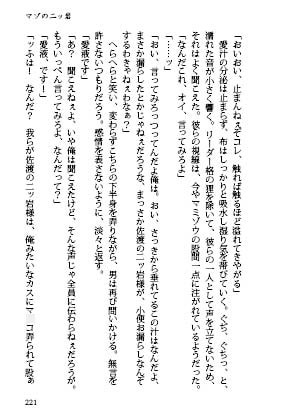 マゾの二ッ岩
「おいおい、止まんねぇぞコレ、触れば触るほど溢れてきやがる」
愛汁の分泌は止まらず、布はしっかりと吸水し湿り気を帯びていく。ぐち、ぐちっ、と、
濡れた音が小さく響く。リーダー格の男を除いて、彼らの一人として声を立てないが、
聞こえるようだ。彼らの視線は、今やマミゾウの股間、一点に注がれていた。
「なんだこれ、オイ、言ってみろよ」
「……ッ」
「おい、言ってみろっつってんだよ俺は。おい、さっきから垂れてるこの汁はなんだよ、
まさか漏らしたとかじゃねぇだろうな、まっさか佐渡の二ッ岩様が、小便お漏らしなんぞ
するわきゃねぇわなぁ？」
へらへらと笑い、変わらずこちらの下半身を弄りながら、男は再び問いかける。無言を
許さないつもりだろう。感情を表さないように、淡々と返す。
「愛液です」
「あ？　聞こえねぇよ。いや俺は聞こえたけど、そんな声じゃ全員に伝わらねぇだろうが。
もういっぺん言ってみろよ、なんだって？」
「愛液、です！」
「ッふは！　なんだ？　我らが佐渡の二ッ岩様は、俺みたいなカスにマ　コ弄られて股ぁ
221